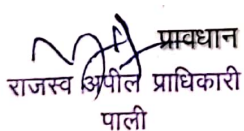 प्रावधान
राजस्व अपील प्राधिकारी
पाली